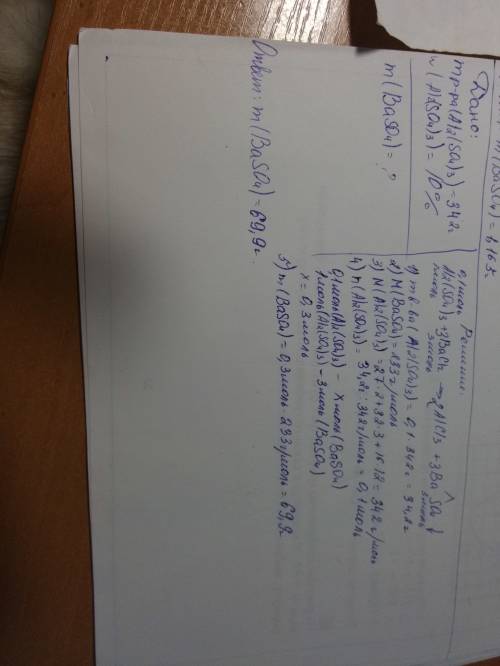 m(BaSO4) = 1,165г
Дано:
mр-ра(Al2(SO4)3) = 342г
w(Al2(SO4)3) = 10%
m(BaSO4) = ?
Решение:
0,1моль
Al2(SO4)3 + 3BaCl2 → 2AlCl3 + 3BaSO4↓
1моль 3моль 3моль
1) mв-ва(Al2(SO4)3) = 0,1 · 342г = 34,2г
2) M(BaSO4) = 233г/моль
3) M(Al2(SO4)3) = 27·2 + 32·3 + 16·12 = 342г/моль
4) n(Al2(SO4)3) = 34,2г : 342г/моль = 0,1моль
0,1моль(Al2(SO4)3) – x моль(BaSO4)
1моль(Al2(SO4)3) – 3моль(BaSO4)
x = 0,3моль
5) m(BaSO4) = 0,3моль · 233г/моль = 69,9г
Ответ: m(BaSO4) = 69,9г.